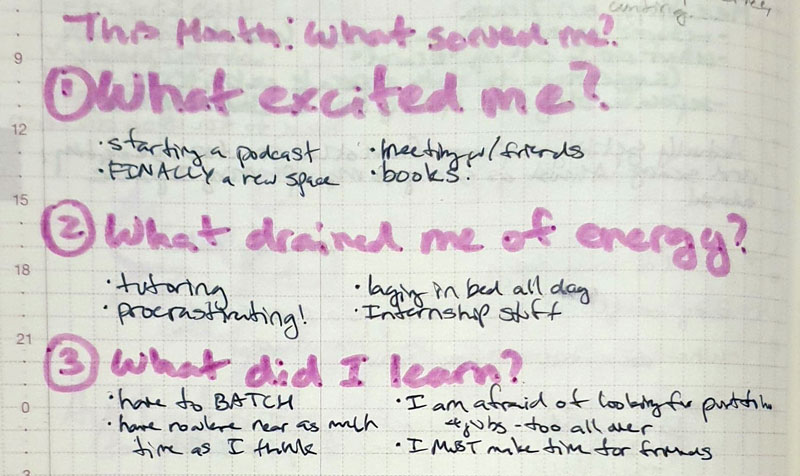 This Month: What served me?
9
① What excited me?
12
· starting a podcast · meeting w/friends
· FINALLY a new space · books.
15
② What drained me of energy?
18
· tutoring · laying in bed all day
· procrastinating! · Internship stuff
21
③ What did I learn?
· have to BATCH · I am afraid of looking for
0
· have nowhere near as much jobs - too all over
time as I think · I MUST make time for friends